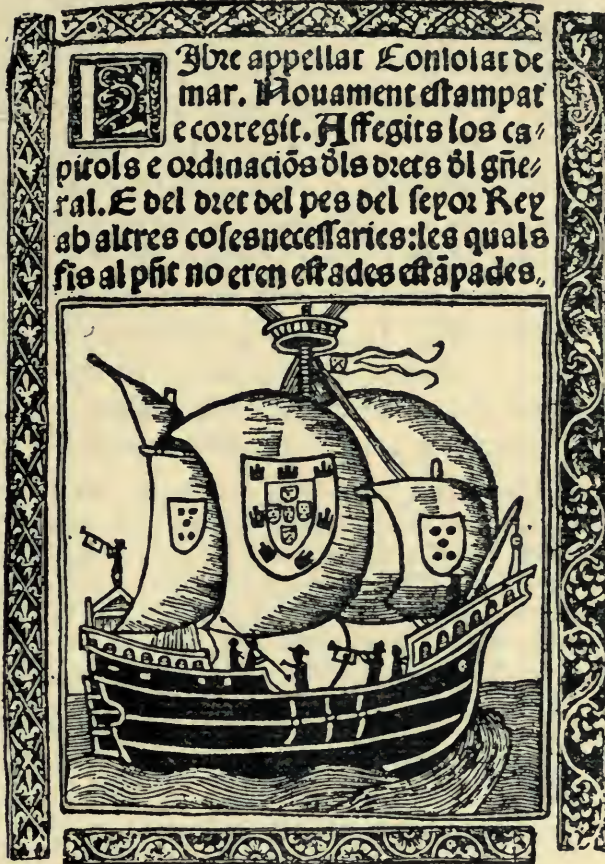 LIbre appellat Conſolat de
mar. Nouament eſtampat
e corregit. Affegits los ca⸗
pitols e ordinaciõs ðls drets ðl gñe⸗
ral. E del dret del pes del ſeyor Rey
ab altres coſes neceſſaries: les quals
fis al pñt no eren eſtades eſtãpades.